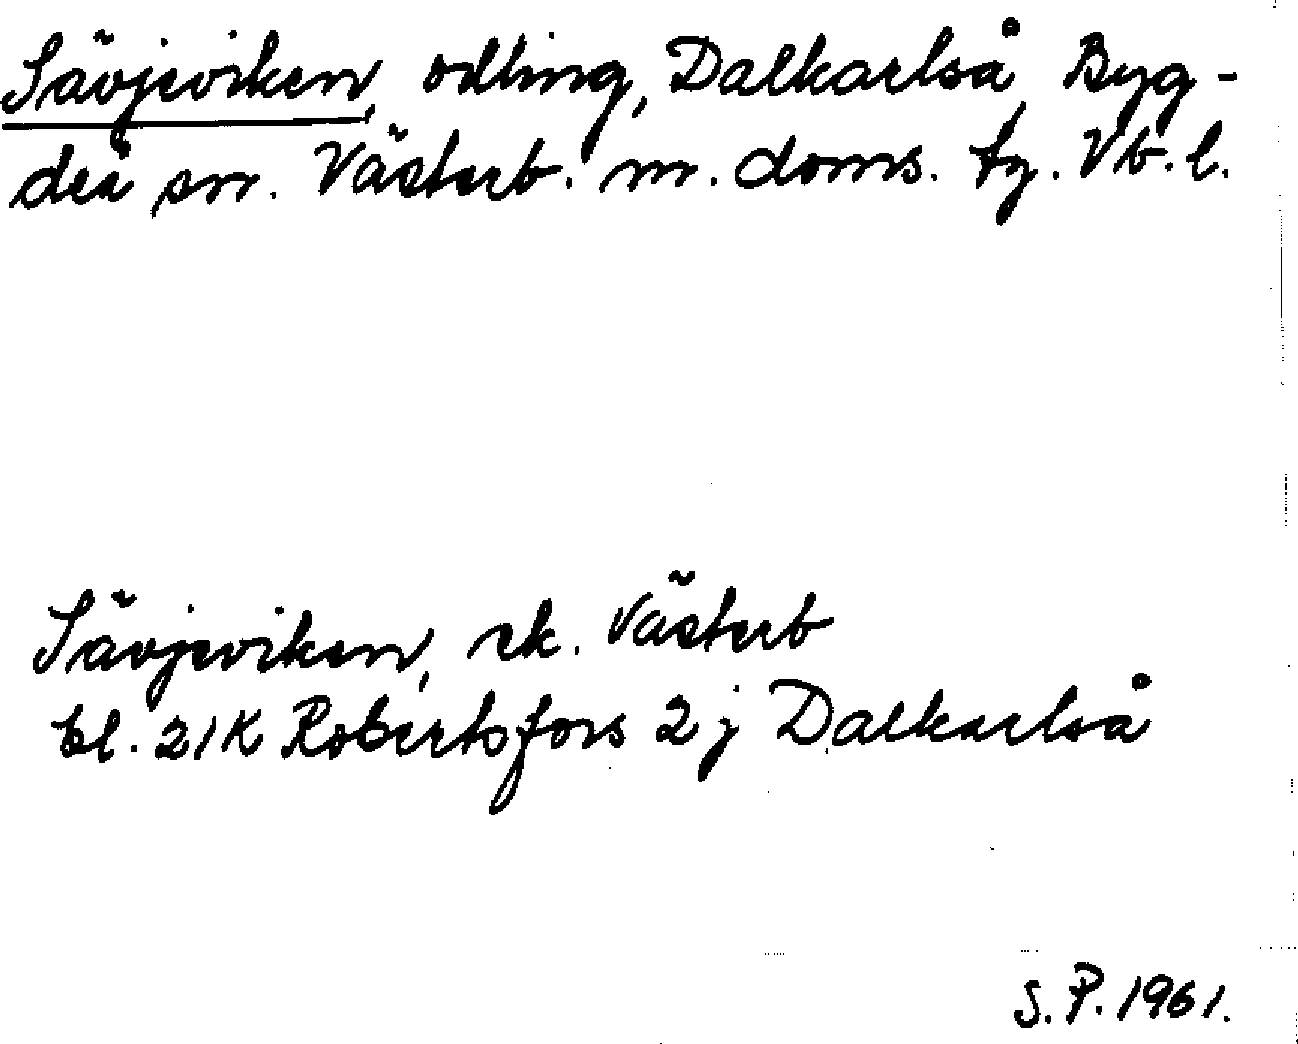 Sävjeviken, odling, Dalkarlså, Byg-
deå sn. Västerb. m. doms. tg. Vb. l.
Sävjeviken, ek. Västerb
bl. 21K Robertsfors 2j Dalkarlså
S.P. 1961.